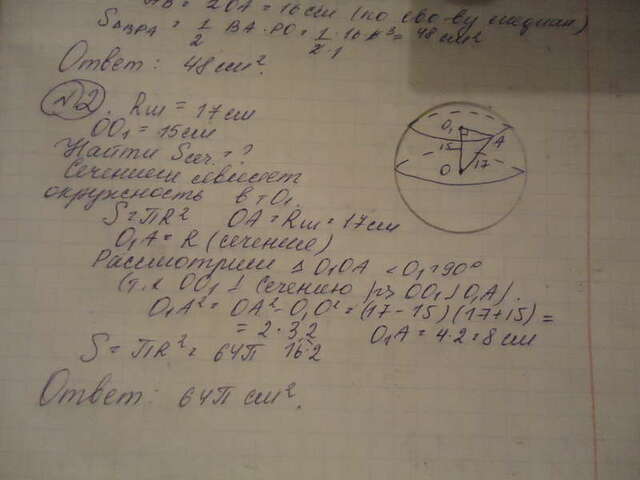 AB = 2OA = 16 см (по св-ву медиан)
S△BPA = 1/2 BA · PO = 1/2 · 16 · = 48 см²
Ответ: 48 см².
№2. Rш = 17 см
OO₁ = 15 см
Найти Sсеч. = ?
Сечением является
окружность в т O₁
S = ПR² OA = Rш = 17 см
O₁A = R (сечение)
Рассмотрим △ O₁OA <O₁ = 90°
(т.к OO₁ ⊥ сечению => OO₁ ⊥ O₁A).
O₁A² = OA² - O₁O² = (17 - 15)(17 + 15) =
= 2 · 32 O₁A = 4 · 2 = 8 см
16·2
S = ПR² = 64П
Ответ: 64П см².
O₁
A
15
17
O